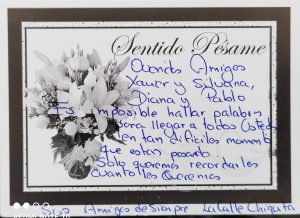 Sentido Pésame
Queridos Amigos
Xavier y Silvana,
Diana y Pablo
Es imposible hallar palabras
para llegar a todos Ustedes
en tan difíciles momentos
que estan pasando
Solo queremos recordarles
cuanto los Queremos
Sus Amigos de Siempre La Calle Chiquita